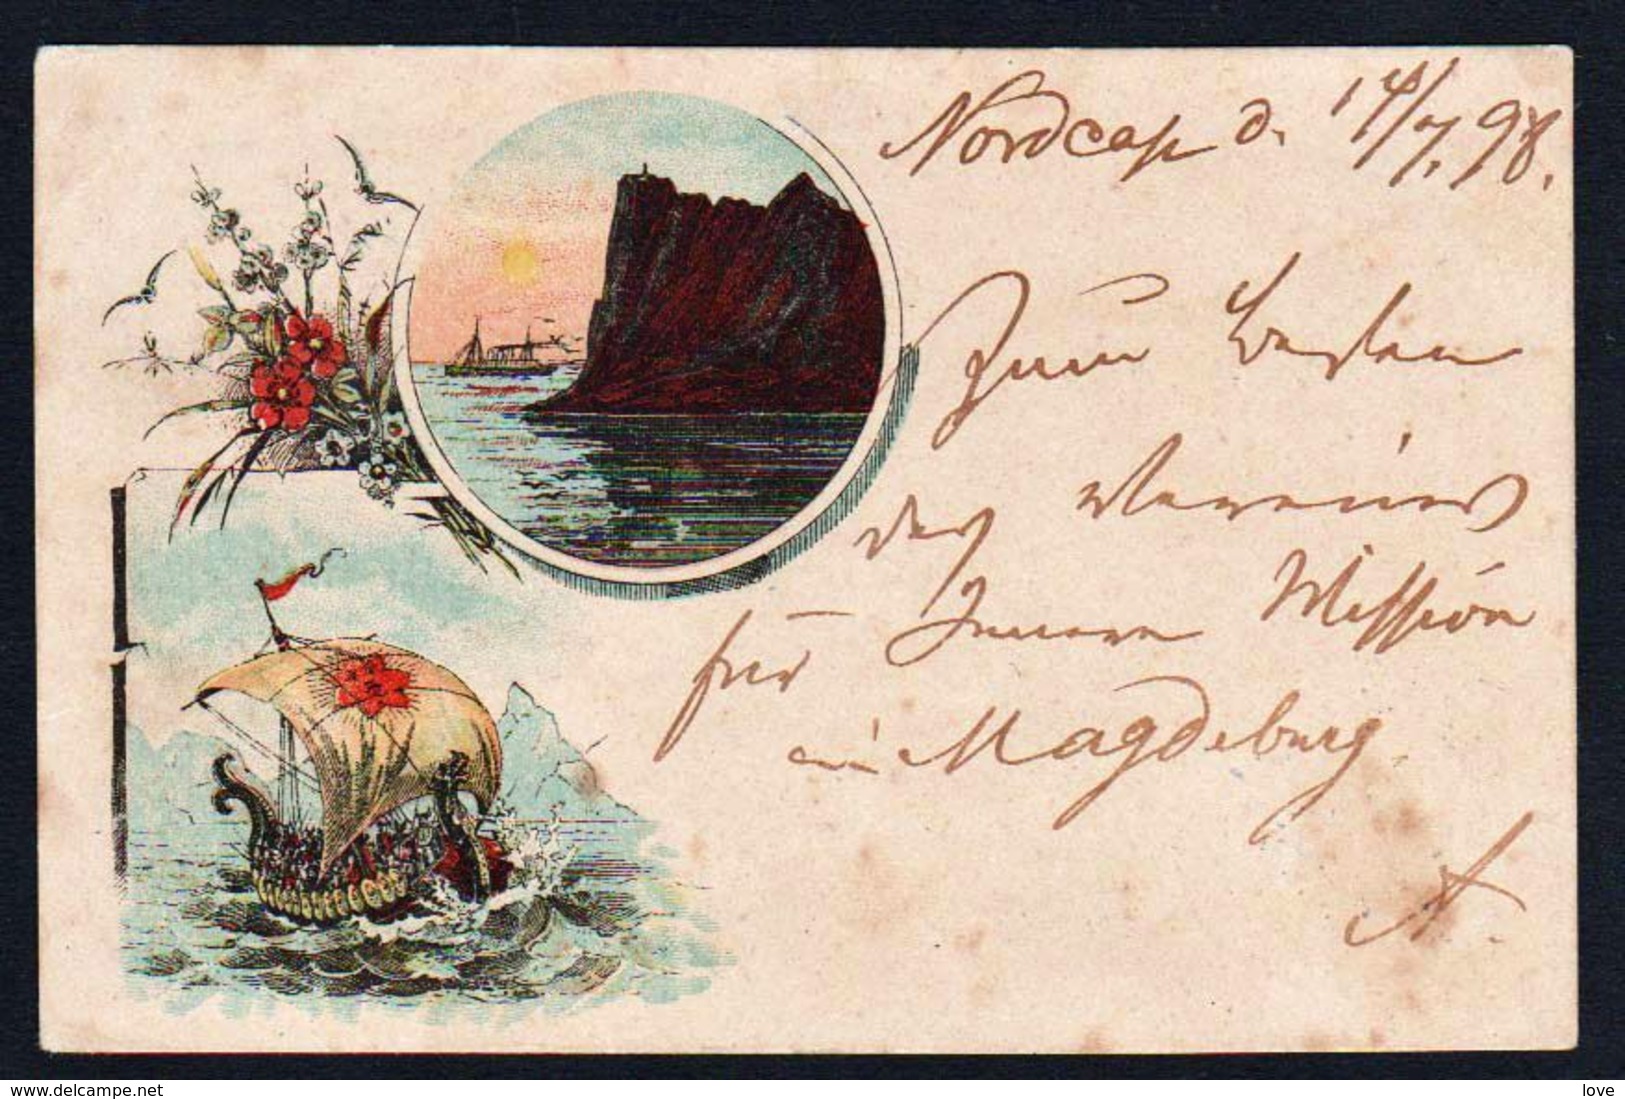 Nordcap d. 14/7. 98.
Zum Besten
des Vereins
für Innere Mission
in Magdeburg
A.
www.delcampe.net
love